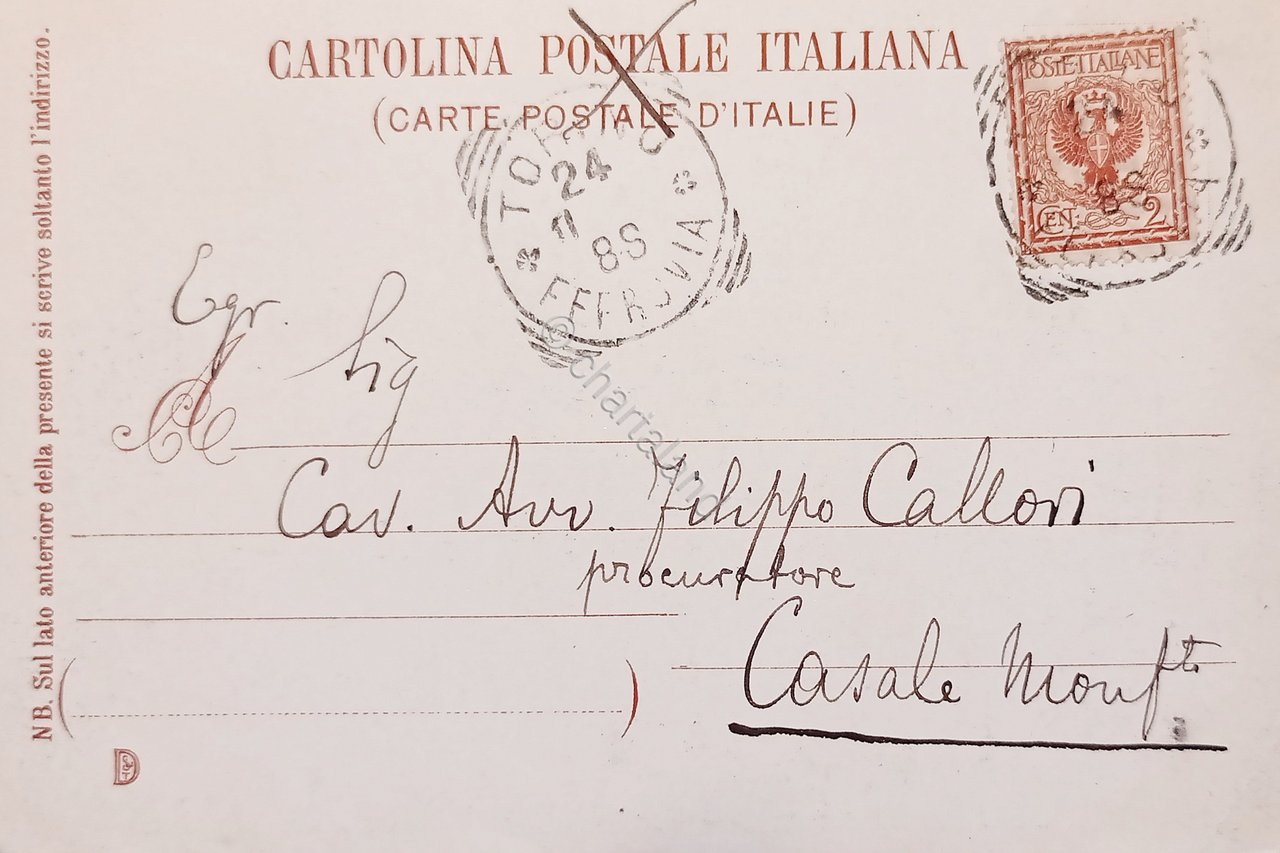 CARTOLINA POSTALE ITALIANA
(CARTE POSTALE D'ITALIE)
POSTE ITALIANE
CEN. 2
24
11
FERROVIA
Egr. Sig
A
Cav. Avv. Filippo Callori
procuratore
Casale Monf.to
NB. Sul lato anteriore della presente si scrive soltanto l'indirizzo.
© chartaland